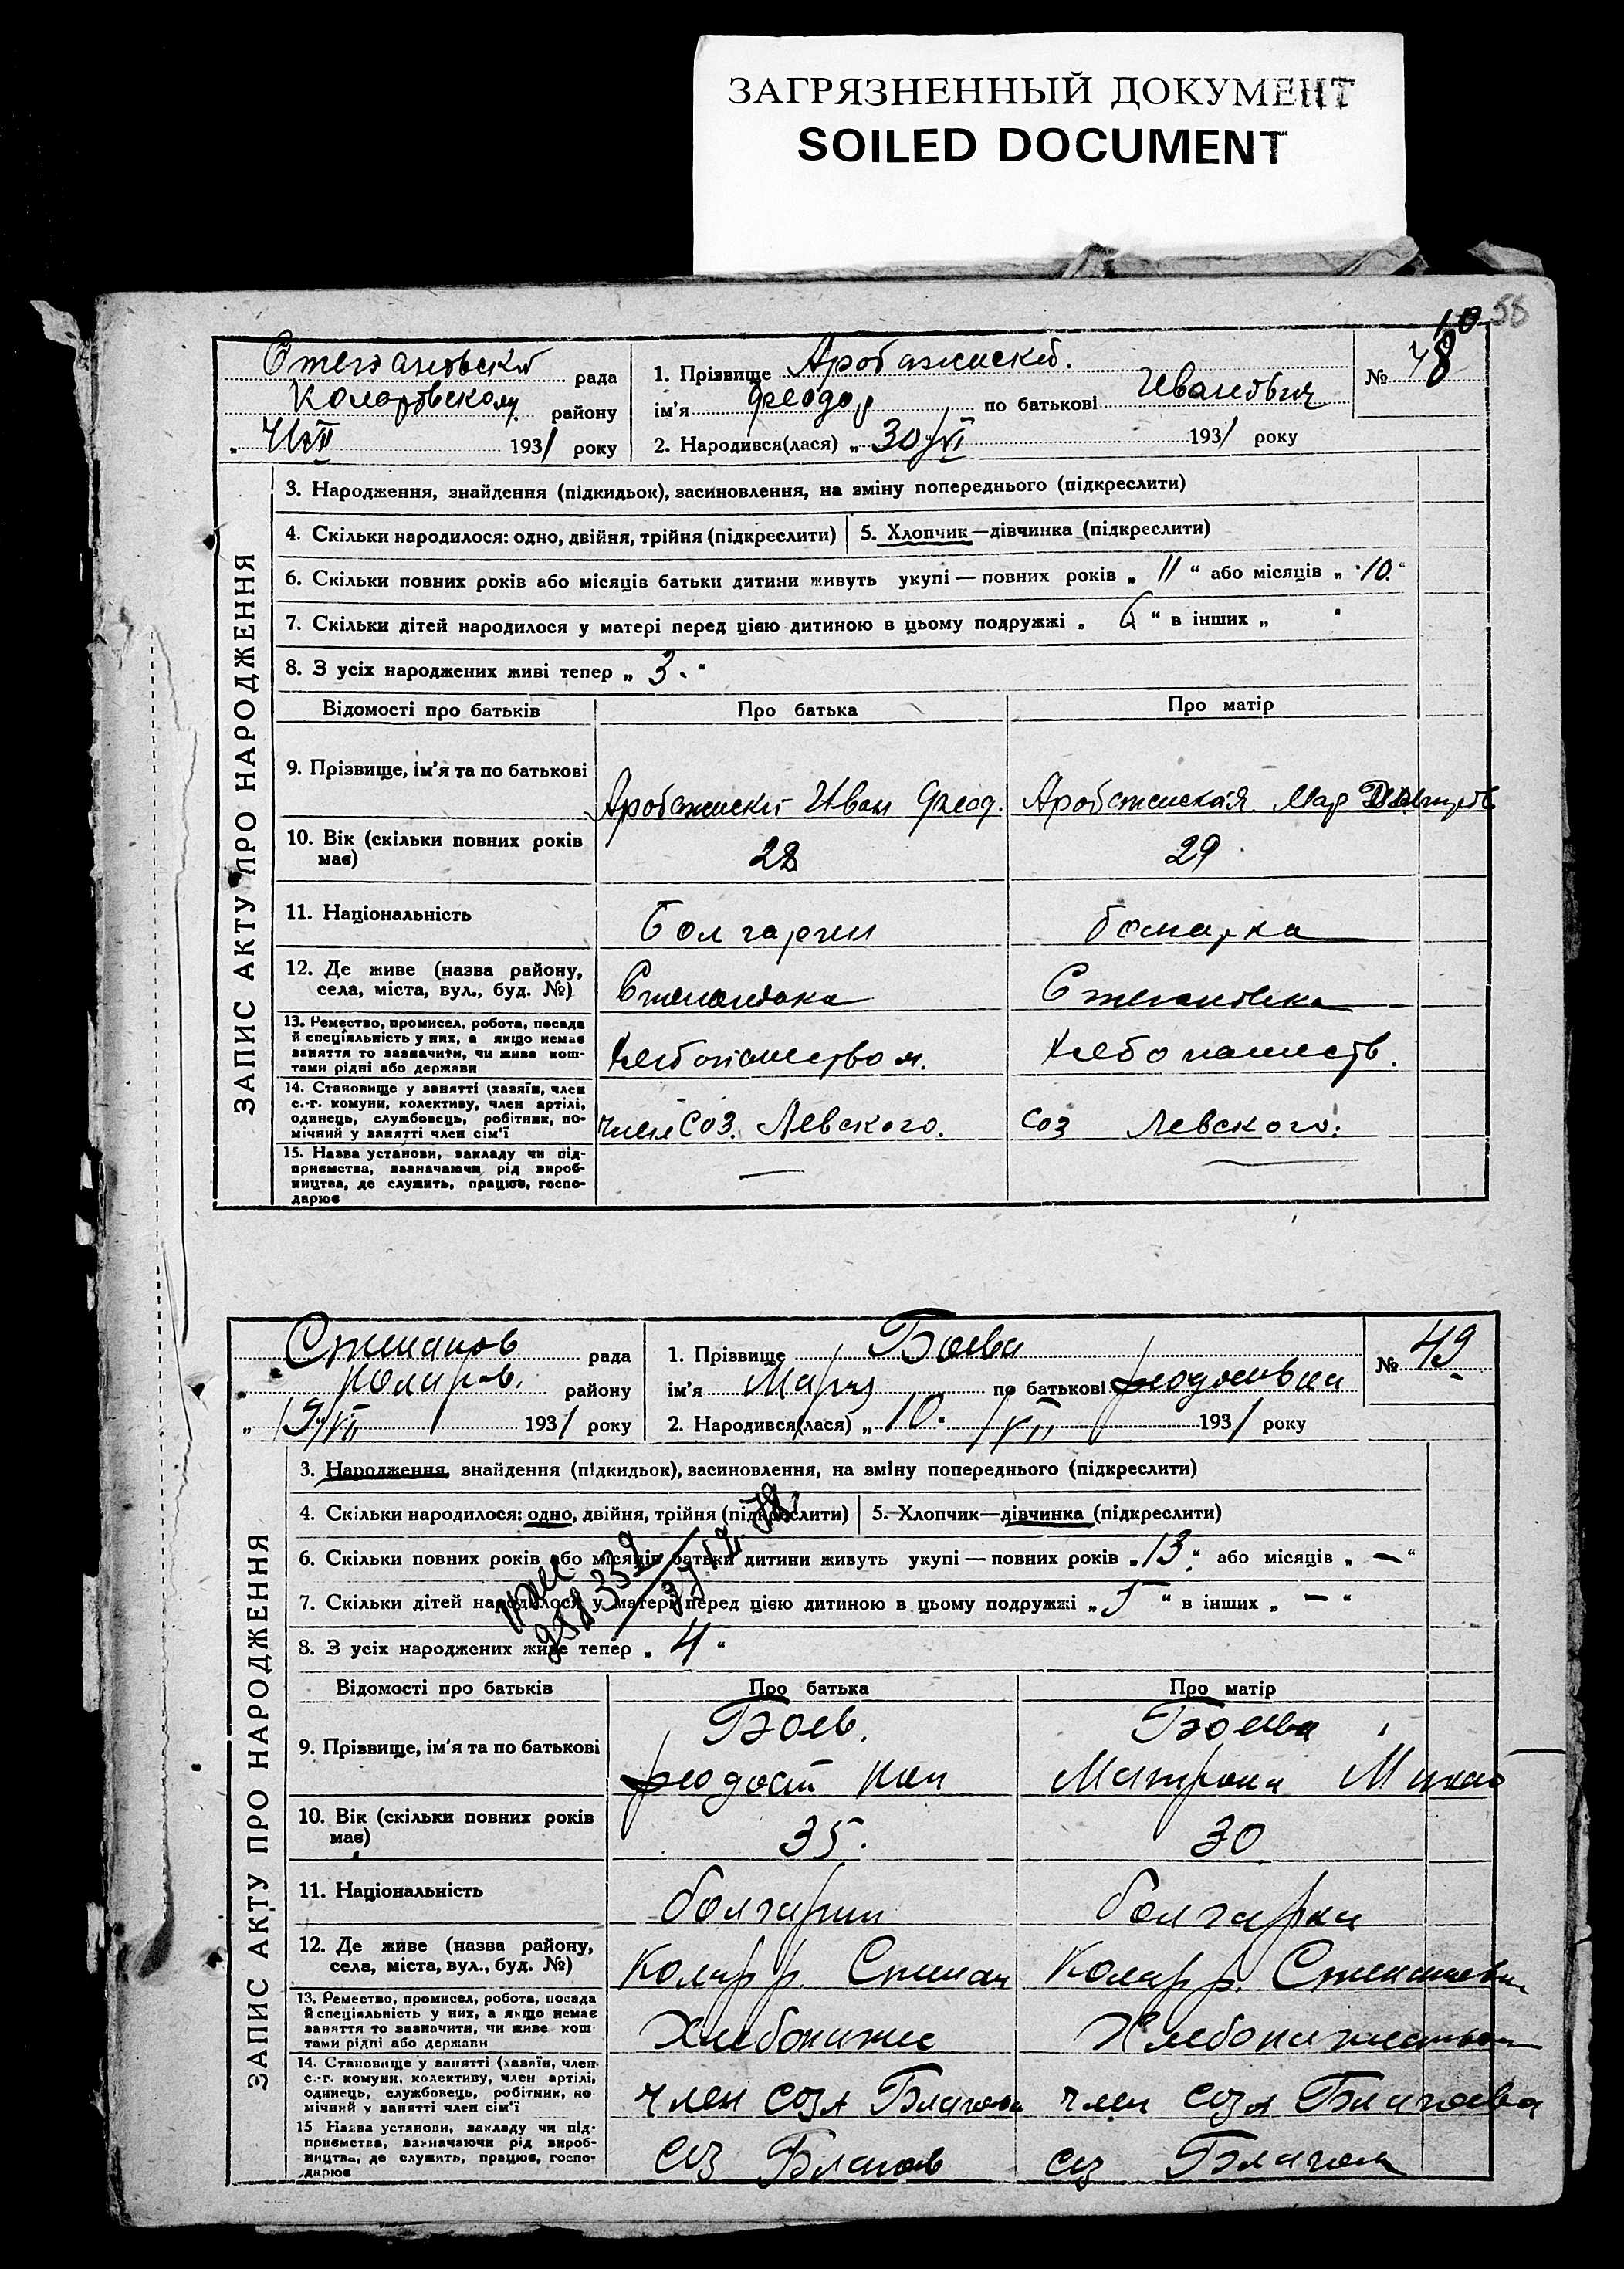 ЗАГРЯЗНЕННЫЙ ДОКУМЕНТ
SOILED DOCUMENT
10 58
Степановский рада
Коларовскому району
193 1 року
1. Прізвище
ім'я Феодор по батькові Иванович
2. Народився(лася) „ 30/VI 193 1 року
№ 48
ЗАПИС АКТУ ПРО НАРОДЖЕННЯ
3. Народження, знайдення (підкидьок), засиновлення, на зміну попереднього (підкреслити)
4. Скільки народилося: одно, двійня, трійня (підкреслити) 5. Хлопчик—дівчинка (підкреслити)
6. Скільки повних років або місяців батьки дитини живуть укупі — повних років „ 11 “ або місяців „ 10. “
7. Скільки дітей народилося у матері перед цією дитиною в цьому подружжі „ “ в інших „ “
8. З усіх народжених живі тепер „ 3. “
Відомості про батьків Про батька Про матір
9. Прізвище, ім'я та по батькові
Иван Феод. Мар
10. Вік (скільки повних років має) 28 29
11. Національність Болгарин болгарка
12. Де живе (назва району, села, міста, вул., буд. №) Степановка Степановка
13. Ремество, промисел, робота, посада й спеціяльність у них, а якщо немає заняття то зазначити, чи живе коштами рідні або держави Хлебопашеством. Хлебопашеств.
14. Становище у занятті (хазяїн, член с.-г. комуни, колективу, член артілі, одинець, службовець, робітник, помічний у занятті член сім'ї член Соз. Левского. Соз Левского.
15. Назва установи, закладу чи підприємства, зазначаючи рід виробництва, де служить, працює, господарює — —
Степанов рада
Колиров. району
„ 19/VII 193 1 року
1. Прізвище Боева
ім'я Мария по батькові Феодосьевна
2. Народився(лася) „ 10. VII 193 1 року
№ 49
ЗАПИС АКТУ ПРО НАРОДЖЕННЯ
3. Народження, знайдення (підкидьок), засиновлення, на зміну попереднього (підкреслити)
4. Скільки народилося: одно, двійня, трійня (підкреслити) 5. Хлопчик—дівчинка (підкреслити)
6. Скільки повних років або місяців батьки дитини живуть укупі — повних років „ 13 “ або місяців „ — “
7. Скільки дітей народилося у матері перед цією дитиною в цьому подружжі „ 5 “ в інших „ — “
8. З усіх народжених живе тепер „ 4 “
Відомості про батьків Про батька Про матір
9. Прізвище, ім'я та по батькові Боев. Боева
Феодосий Матрона
10. Вік (скільки повних років має) 35. 30
11. Національність болгарин болгарка
12. Де живе (назва району, села, міста, вул., буд. №) Колар р. Степан Колар р. Степановка
13. Ремество, промисел, робота, посада й спеціяльність у них, а якщо немає заняття то зазначити, чи живе коштами рідні або держави
14. Становище у занятті (хазяїн, член с.-г. комуни, колективу, член артілі, одинець, службовець, робітник, помічний у занятті член сім'ї член соза Благоева член соза Благоева
15 Назва установи, закладу чи підприємства, зазначаючи рід виробництва, де служить, працює, господарює соз Благоев соз